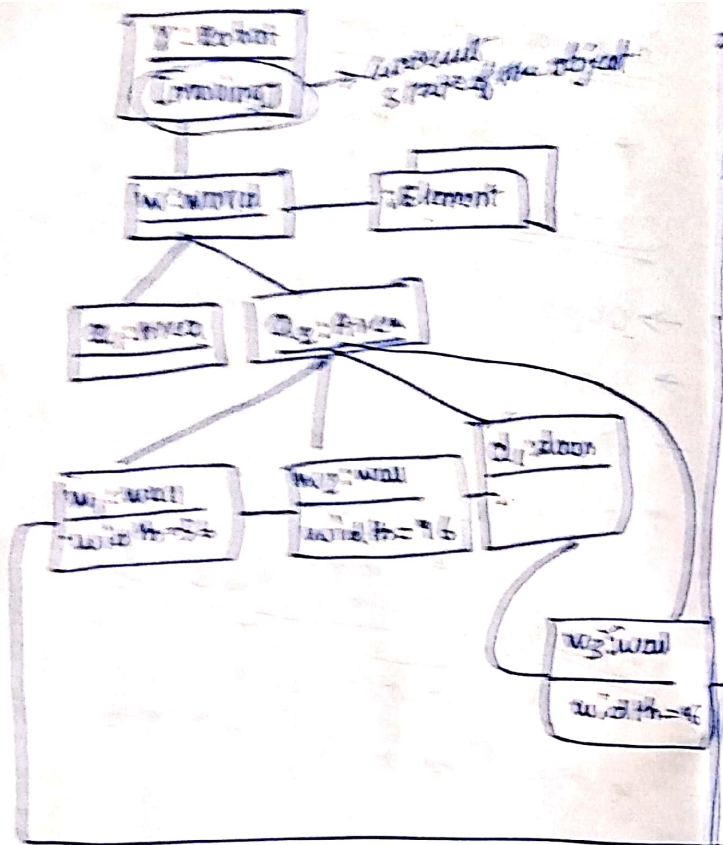 r : Robot
[moving]
current
state of the object
w : world
: Element
a1 : Area
a2 : Area
d1 : door
w1 : wall
w2 : wall
width = 36
width = 96
w3 : wall
width = 96